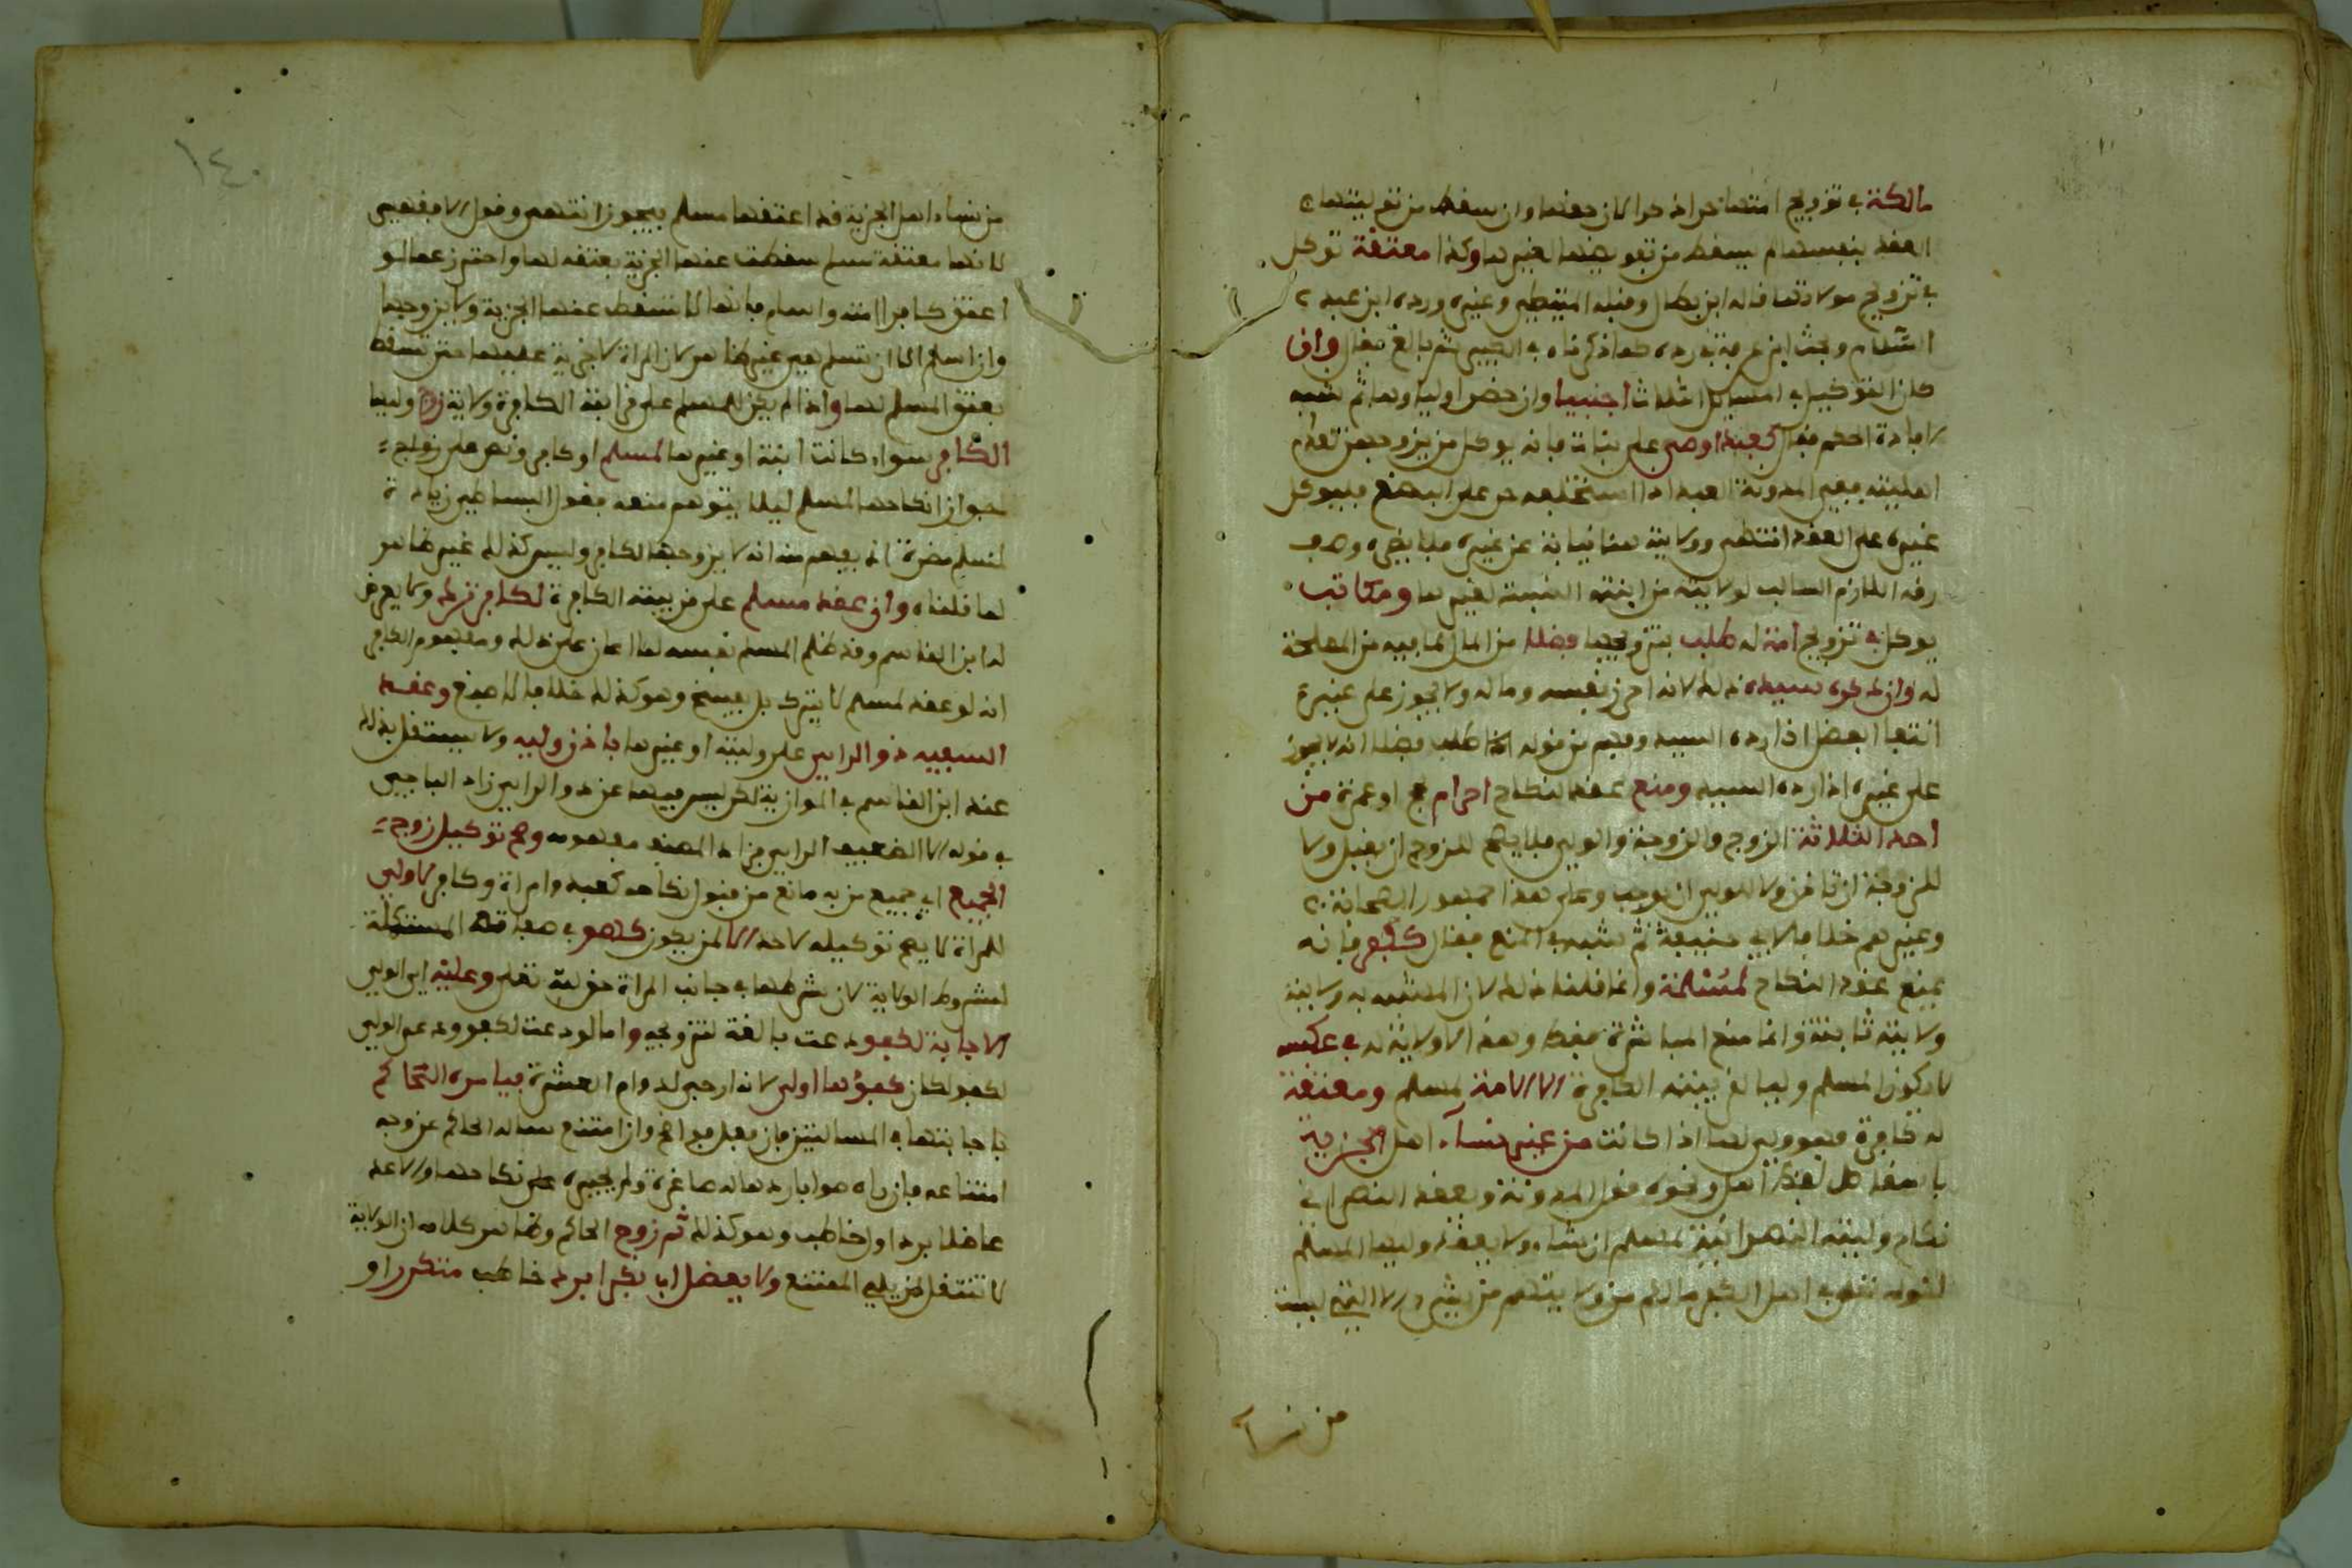 مالكة في تزويج امتها حرا اذ حرا لان حقها وان سقط من تولية
العقد بنفسها لم يسقط من تفويضها لغيرها وكذا معتقة توكل
في تزويج مولاتها قاله ابن بطال وقبله المتيطي وغيره ورده ابن عبد
السلام وبحث ابن عرفة في رده كما ذكرناه في الكبير ثم بالغ فقال وان
كان التوكيل في المسايل الثلاث اجنبيا وان حضر اولياوها ثم شبه
لافادة الحكم فقال كعبد اوصي على بنات فانه يوكل من يزوجهن لعدم
اهليته ففي المدونة العبد اذا استخلفه حر على البضع فليوكل
غيره على العقد انتهى وولايته هنا نيابة عن غيره فلا يضره وصف
رقه اللازم السالب لولايته من ابنته المثبتة لغيرها ومكاتب
يوكل في تزويج امة له طلب بتزويجها فضلا من المال لما فيه من المصلحة
له وان كره سيده ذلك لانه احرز نفسه وماله ولا يجوز على غيره
انتفا الفضل اذا رده السيد وفهم من قوله طلب فضلا انه لا يجوز
على غيره اذا رده السيد ومنع عقد لنكاح احرام بحج او عمرة من
احد الثلاثة الزوج والزوجة والولي فلا يصح للزوج ان يقبل ولا
للزوجة ان تاذن ولا للولي ان يوجب وعلى هذا جمهور الصحابة
وغيرهم خلافا لابي حنيفة ثم شبه في المنع فقال ككفر فانه
يمنع عقد النكاح لمسلمة وانما قلنا ذلك لان المتشبه به ولاية
ولايته ثابتة وانما منع المباشرة فقط وهذا لا ولاية له في عكسه
لا يكون المسلم وليا لقريبته الكافرة الا لامة لمسلم ومعتقة
له كافرة فهو ولي لها اذا كانت من غير نسآء اهل الجزية
باسقاط لفظ اهل ونحوه قول المدونة ويعقد النصراني
نكاح وليته النصرانية لمسلم ان شاء ولا يعقد وليها المسلم
لقوله تعلى في اهل الكفر ما لكم من ولايتهم من شيء ولا التي ليست
من نسآ
١٤٠
من نساء اهل الجزية قد اعتقها مسلم فيجوز انتهى وقول الامفهيى
لانها معتقة مسلم سقطت عنها الجزية بعتقه لها واحترز عما لو
اعتق كافر امته واسلم فانها لا تسقط عنها الجزية ولا يزوجها
وان اسلم الا ان تسلم هي غير ظاهر لان المراة لا جزية عليها حتى تسقط
بعتق المسلم لها واذا لم يكن للمسلم على قرابته الكافرة ولاية زوج وليها
الكافر سواء كانت ابنة او غيرها لمسلم او كافر ونص على
جواز انكاحها لمسلم ليلا يتوهم منعه فقول البساطي زيادة
لمسلم مضرة اذ يفهم منه انه لا يزوجها لكافر وليس كذلك غير ظاهر
لما قلناه وان عقد مسلم على قريبته الكافرة لكافر ترك ولا يعرض
له ابن القاسم وقد ظلم المسلم نفسه لما اعان على ذلك ومفهوم لكافر
انه لو عقد لمسلم لا يترك بل يفسخ وهو كذلك خلافا لاصبغ وعقد
السفيه ذو الراي على وليته او غيرها باذن وليه ولا يستقل بذلك
عند ابن القاسم في الموازية لكن ليس فيها عن ذو الراي زاد الباجي
في قوله الا الضعيف الراي فزاد المصنف مفهومه وصح توكيل زوج
الجميع اي جميع من به مانع من قبول نكاحه كعبد وامراة وكافر لا ولي
للمراة لا يصح توكيله لاحد الا لمن يكون كهو في صفاته المستكملة
لشروط الولاية لان شرطها في جانب المراة حق لله تعلى وعليه اي الولي
الاجابة لكفو دعت بالغة لتزويجه واما لو دعت لكفو ودعى الولي
لكفو لكان كفوها اولى لانه ارجى لدوام العشرة فيامره الحاكم
باجابتها في المسالتين فان فعل فواضح وان امتنع ساله الحاكم عن وجه
امتناعه فان رءاه صوابا ردها له صاغرة ولم يجبره على نكاحها والا عد
عاضلا برد اول خاطب وهو كذلك ثم زوج الحاكم وظاهر كلامه ان الولاية
لا تنتقل لمن يلي الممتنع ولا يعضل اب بكرا برد خاطب متكرر او